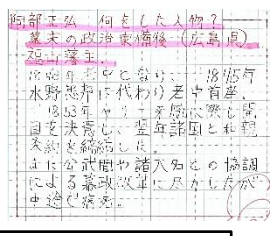 阿部正弘 何をした人物?
幕末の政治家備後(広島県)
福山藩主。
1843年老中となり、1845年
水野忠邦に代わり老中首座。
1853年ペリー来航に際し開
国を決意し、翌年諸国と和親
条約を締結した。
また公武間や諸大名との協調
による幕政改革に尽力したが
中途で病死。